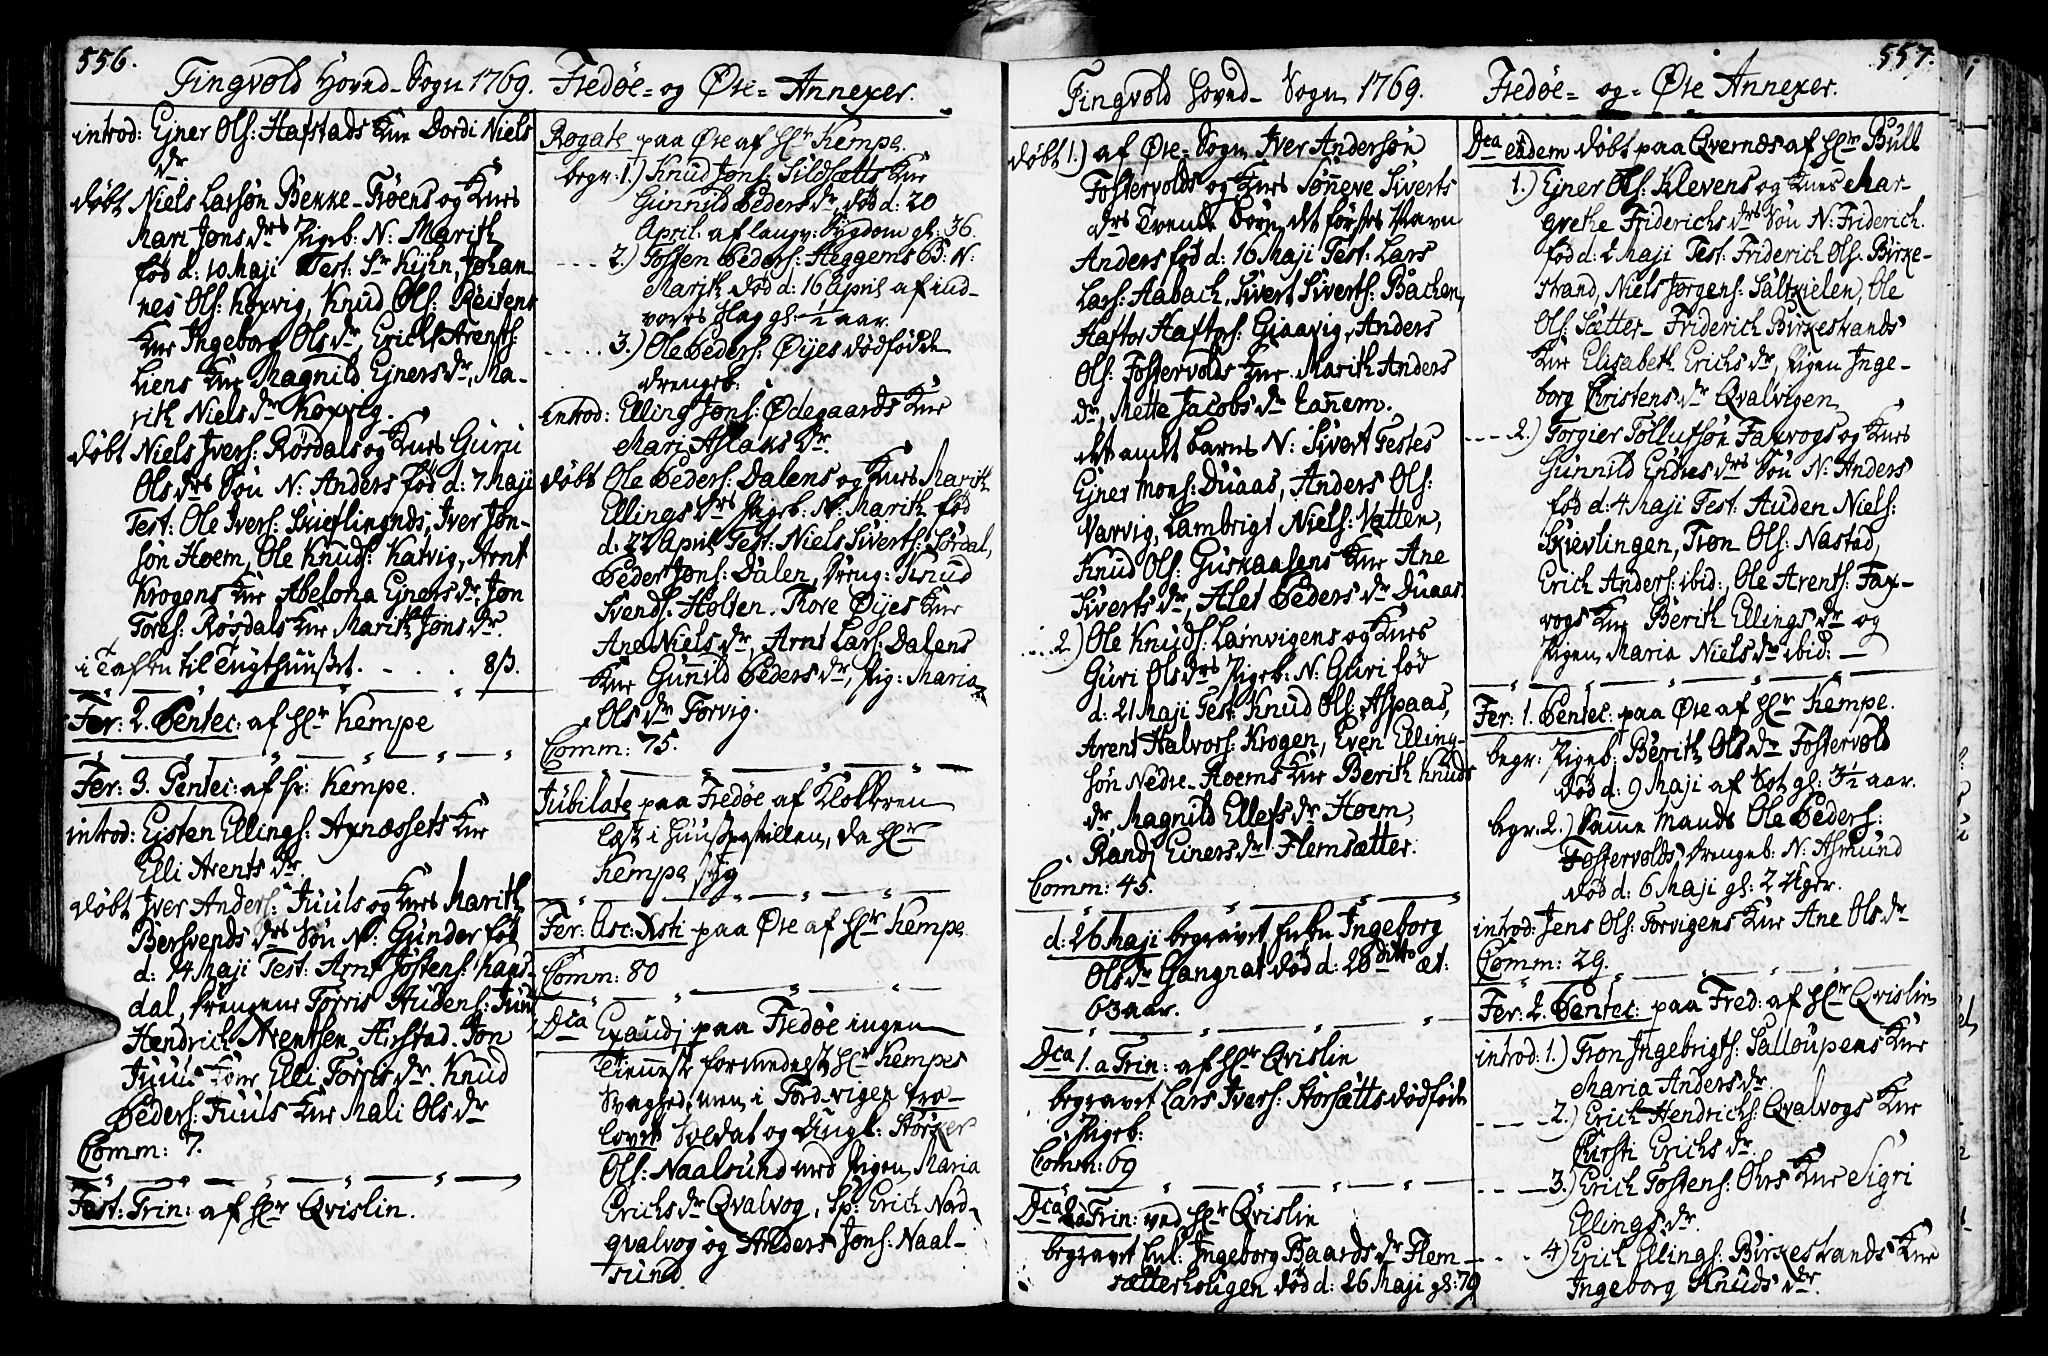 556.
Tingvold Hoved-Sogn 1769. Fredøe- og Øre- Annexer.
introd: Ejner Ols: Hafstads Kne Dordi Niels
dr
døbt Niels Larsøn Bekke-Trøens og Knes
Mari Jons drs Pigeb: N: Marith
fød d: 10 Maji Test: Sr Kijhn, Johan-
nes Ols: Koxvig, Knud Ols: Reitens
Kne Ingeborg Ols dr, Erich Arents:
Liens Kne Magnild Ejners dr, Ma-
rith Niels dr Koxvig.
døbt Niels Ivers: Rørdals og Knes Guru
Ols drs Søn N: Anders fød d: 7 Maji
Test: Ole Ivers: Skieflingnds, Iver Jon-
søn Hoem, Ole Knuds: Katvig, Arnt
Krogens Kne Abelona Ejners dr, Jon
Tores: Røsdals Kne Marith Jons dr.
i Taflen til Tugthuuset. - . . . 8 ß.
Fer: 2. Pentec: af Hr Kempe
Fer: 3. Pentec: af Hr: Kempe.
introd: Eisten Ellings: Axnæssets Kne
Elli Arents dr.
døbt Iver Anders: Juuls og Knes Marith
Bersvends drs Søn N: Gunder fød
d: 14 Maji Test: Arnt Jostens: Hans-
dal, Drengene Torris Audens: Juul
Hendrich Arentsen Hirstad. Jon
Juuls Kone Elli Torris dr. Knud
Peders: Juuls Kne Mali Ols dr
Comm: 7.
Fest: Trin: af Hr Qvislin.
Rogate paa Øre af Hr Kempe.
begr: 1.) Knud Jons: Sildsætts Kne
Gunnild Peders dr død d: 20
April: af langv: Sygdom gl: 36.
- - - - 2.) Tosten Peders: Heggems B: N:
Marith død d: 16 April af ind-
vortes Slag gl: ½ aar.
. . . . . 3.) Ole Peders: Øijes dødfødde
Drengeb:
introd: Elling Jons: Ødegaards Kne
Mari Aslaks dr.
døbt Ole Peders: Dalens og Knes Marith
Ellings drs Pigeb: N: Marith fød
d: 22 April Test: Niels Siverts: Sordal,
Peder Jons: Dalen, Dreng: Knud
Svends: Holten. Tore Øijes Kne
Ane Niels dr, Arnt Lars: Dalens
Kne Gunnild Peders dr, Pig: Maria
Ols dr Torvig.
Comm: 75.
Jubilate paa Fredøe af Klokkeren
læst i Huuspostillen, da Hr
Kempe syg
Fer: Asc: Xsti paa Øre af Hr Kempe
Comm: 80
Dca Exaudj paa Fredøe ingen
Tienneste formedelst Hr Kempes
Svaghed, men i Tordvigen tro-
lovet Soldat og Ungk: Størker
Ols: Naalsund med Pigen Maria
Erichs dr Qvalvog, Sp: Erich Nord-
qvalvog og Anders Jons: Naal-
sund.
557.
Tingvold Hoved- Sogn 1769. Fredøe- og- Øre Annexer.
døbt 1.) af Øre- Sogn Iver Andersøn
Fostervolds og Knes Sønneve Siverts
drs Tvende Børn, det førstes Navn
Anders fød d: 16 Maji Test: Lars
Lars: Aabach, Sivert Siverts: Bachen,
Haftor Haftors: Giaavig, Anders
Ols: Fostervolds Kne. Marith Anders
dr, Mette Jacobs dr Eannem.
det andt Barns N: Sivert Testes
Ejner Mons: Duaas, Anders Ols:
Varvig, Lambrigt Niels: Vatten,
Knud Ols: Guskaalens Kne Ane
Siverts dr, Alet Peders dr Duaas.
. . . 2.) Ole Knuds: Lamvigens og Knes
Guri Ols drs Pigeb: N: Guri fød
d: 21 Maji Test: Knud Ols: Aspaas,
Arent Halvors: Krogen, Even Elling-
søn Nedre-Hoems Kne Berith Knuds
dr, Magnild Ellefs dr Hoem,
Randj Einers dr Flemsætter.
Comm: 45.
d: 26 Maji begravet Enken Ingeborg
Ols dr Gangnat død d: 20 ditto æt:
63 aar.
Dca 1. a Trin: af Hr Qvislin
begravet Lars Ivers: Storsætts dødfødde
Pigeb:
Comm: 69
Dca 2 a Trin: ved Hr Qvislin
begravet Enk: Ingeborg Baards dr Flem-
sætterholigen død d: 26 Maji gl: 79
Dca eadem døbt paa Qvernæs af Hr Bull
1.) Ejner Ols: Klevens og Knes Mar-
grethe Friderichs drs Søn N: Friderich.
fød d: 2 Maji Test: Friderich Ols: Birke-
strand, Niels Jørgens: Saltkielen, Ole
Ols: Sætter- Friderich Birkestrands
Kne Elisabeth Erichs dr, Pigen Inge-
borg Christens dr Qvalvigen
- - - 2.) Torgier Tollufsøn Faxvogs og Knes
Gunnild Endres drs Søn N: Anders
fød d: 4 Maji Test: Auden Niels:
Skievlingen, Tron Ols: Nastad,
Erich Anders: ibid:, Ole Arents: Fax-
vogs Kne Berith Ellings dr og
Pigen Maria Niels dr ibid: —
Fer: 1. Pentec: paa Øre af Hr Kempe.
begr: Pigeb: Berith Ols dr Fostervold
død d: 9 Maji af Sot gl: 3½ aar.
begr: 2.) Samme Mands Ole Peders:
Fostervolds Drengeb: N: Asmund
død d: 6 Maji gl: 2 Uger.
introd: Jens Ols: Torvigens Kne Ane Ols dr
Comm: 29.
Fer: 2. Pentec: paa Fred: af Hr Qvislin
introd: 1.) Tron Ingebrigts: Salloupens Kne
Maria Anders dr.
- - - - 2.) Erich Hendrichs: Qvalvogs Kne
Kirsti Erichs dr.
- - - - 3.) Erich Tostens: Ohrs Kne Sigri
Ellings dr.
- - - 4) Erich Ellings: Birkestrands Kne
Ingeborg Knuds dr.